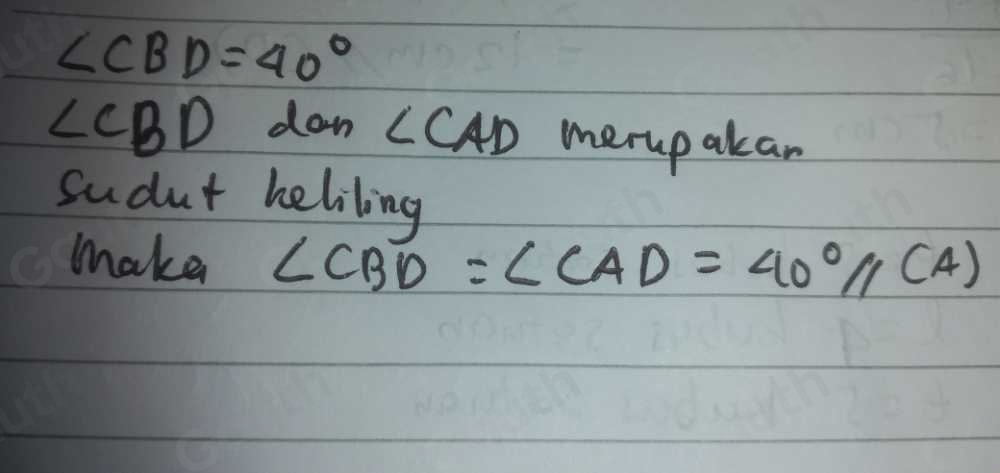 ∠CBD = 40°
∠CBD dan ∠CAD merupakan
sudut keliling
Maka ∠CBD = ∠CAD = 40° // (A)